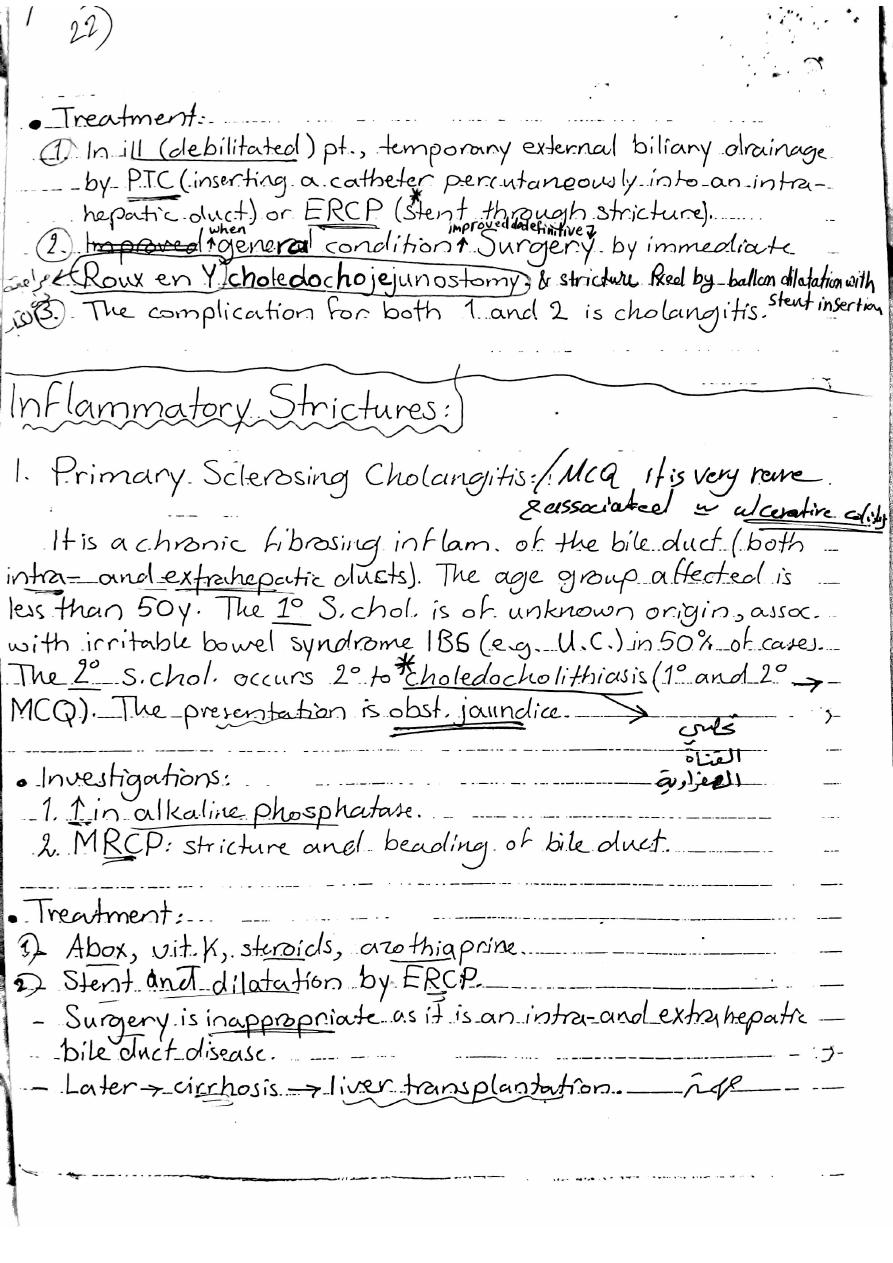 22)
• Treatment:
1. In ill (debilitated) pt., temporary external biliary drainage
by PTC (inserting a catheter percutaneously into an intra-
hepatic duct) or ERCP (*stent through stricture).
when improved definitive
2. Improved ↑ general condition ↑ Surgery by immediate
Roux en Y choledochojejunostomy & stricture fixed by ballon dilatation with
stent insertion
3. The complication for both 1 and 2 is cholangitis.
Inflammatory Strictures:
1. Primary Sclerosing Cholangitis: / MCQ It is very rare
& associated w ulcerative colitis
It is a chronic fibrosing inflam. of the bile duct (both
intra- and extrahepatic ducts). The age group affected is
less than 50y. The 1° S.chol. is of unknown origin, assoc.
with irritable bowel syndrome IBS (e.g. U.C.) in 50% of cases.
The 2° s.chol. occurs 2° to *choledocholithiasis (1° and 2° →
MCQ). The presentation is obst. jaundice.
القناة
الصفراوية
• Investigations:
1. ↑ in alkaline phosphatase.
2. MRCP: stricture and beading of bile duct.
• Treatment:
1) Abox, vit. K, steroids, azothiaprine.
2) Stent and dilatation by ERCP.
- Surgery is inappropriate as it is an intra- and extrahepatic
bile duct disease.
- Later → cirrhosis → liver transplantation.